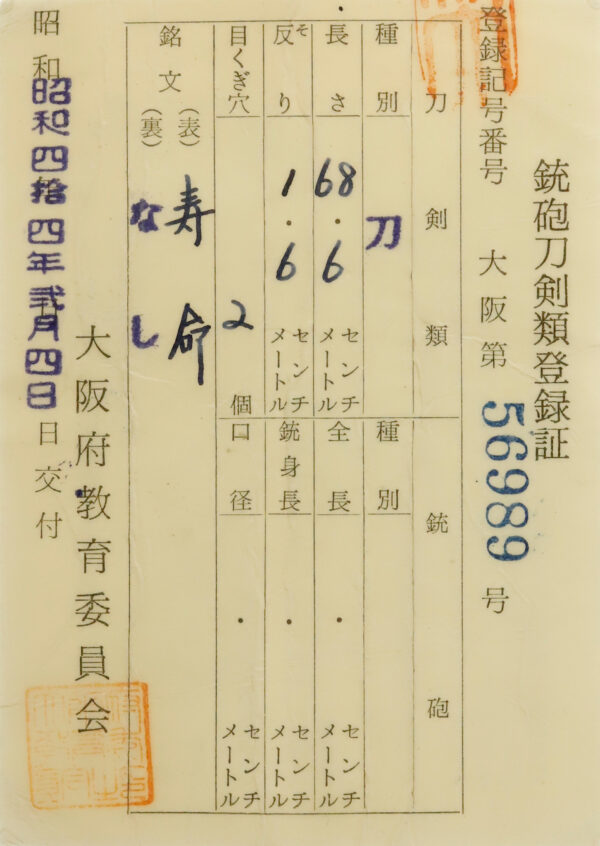 銃砲刀剣類登録証
登録記号番号 大阪第 56989 号
刀剣類
種別 刀
長さ 68.6 センチメートル
反り そ 1.6 センチメートル
目くぎ穴 2 個
銘文 (表) 寿命
(裏) なし
銃砲
種別
全長 ・ センチメートル
銃身長 ・ センチメートル
口径 ・ センチメートル
大阪府教育委員会
昭和 昭和四拾四年弐月四日 日交付